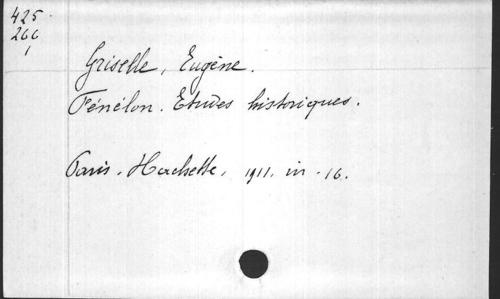 425
266
1
Griselle, Eugène.
Fénélon. Etudes historiques.
Paris. Hachette. 1911. in-16.